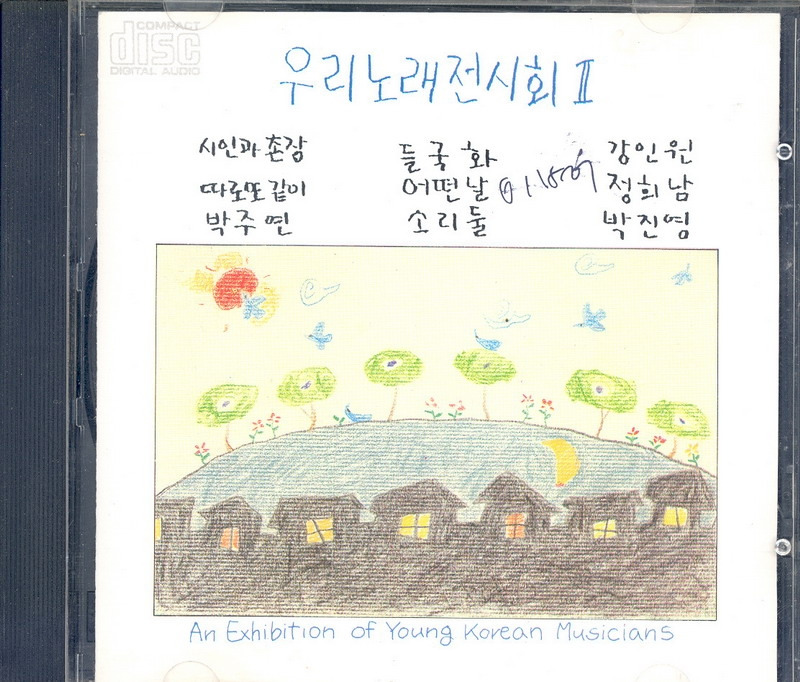 COMPACT
disc
DIGITAL AUDIO
우리노래전시회 II
시인과 촌장 들국화 강인원
따로또같이 어떤날 정희남
박주연 소리둘 박진영
An Exhibition of Young Korean Musicians